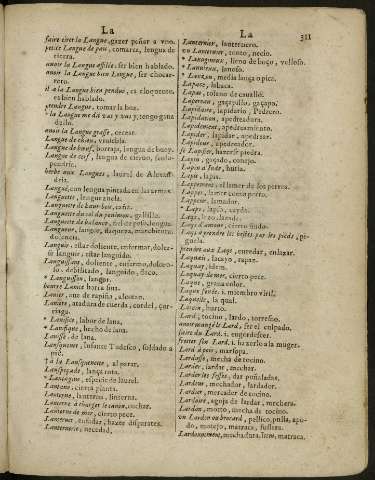 La
La
311
faire tirer la Langue, gazer peñar a vno.
petite Langue de pau, comarca, lengua de
tierra.
auoir la Langue affilée, ser bien hablado.
auoir la Langue bien longue, ser chocar-
rero.
il a la Langue bien pendue, es eloquente,
es bien hablado.
prendre Langue, tomar boz.
la Langue me dà
tengo gana
auoir la Langue grasse, cecear.
Langue de chien, viniebla.
Langue de bœuf, borraja, lengua de buey.
Langue de cerf, lengua de cieruo,
herbe aux Langues, laurel de Alexan-
dria.
Langué, con lengua pintada en las armas.
Languette, lengua
Languette de haut-bois, caña.
Languette du col du
Languette de balance, fiel de peso, lenguaza
Langueur, langor, flaqueza,
dolencia.
Languir, estar doliente, enfermar, dolec-
se languir, estar
Languissant, doliente, enfermo,
so, debilitado, languido, flaco.
Languisson, langor.
Lanier, aue de rapiña, alcotan.
Laniere, atadura de cuerda, cordel, cor-
Lanifice, labor de lana.
Lanifique, hecho de lana.
Lanisse, de lana.
Lansquenet, Infante Tudesco, soldado a
pie.
à la Lansquenette, al parar.
Lanspeçade, lança rota.
Lantagine, especie de laurel.
Lantane, cierta planta.
Lanterne, lanterna, linterna.
Lanterne à charger le canon, cuchar.
Lanterne de mer, cierto pece.
Lanterner, enfadar, hazer disparates.
Lanternerie, necedad.
Lanternier, lanternero.
vn Lanternier, tonto, necio.
Lanugineux, lleno de boço, velloso.
Lanuleux, lanoso.
Lanzan, media langa o pica.
Lapace, labaca.
Lapas, tolano de cauallo.
Lapereau, gaçapillo, gaçapo.
Lapidaire, lapidario, Pedrero.
Lapidateur, apedreadora.
Lapidement, apedreamiento.
Lapider, lapidar, apedrear.
Lapideur, apedreador.
se Lapifier, hazerse piedra.
Lapin, gaçapo, conejo.
Lapin d'Inde, huria.
Lapis, lapis.
Lappement, el lamer de los perros.
Lapper, lamer como perro.
Lappeur, lamedor.
Laps, lapso, caydo.
Laqs, lazo, lazada.
Laqs d'amour, cierto ñudo.
Laqs à prendre les bestes par les pieds, pi-
guela.
prendre aux Laqs, enredar, enlazar.
Laquais, lacayo, rapaz.
Laquay, idem.
Laquay de mer, cierto pece.
Laque, grana color.
Laque fardée, i. miembro viril.
Laquelle, la qual.
Larcin, hurto.
Lard, tocino, lardo, torresno.
auoir mangé le Lard, ser el culpado.
faire du Lard, i. engordesser.
frotter son Lard, i. hazerlo a la muger.
Lard à pois, marlopa.
Lardasse, mecha de tocino.
Larder, lardar, mechar.
Larder les fesses, dar puñaladas.
Lardeur, mechador, lardador.
Lardier, mercader de tocino.
Lardoire, aguja de lardar, mechera.
Lardon, motto, mecha de tocino.
vn Lardon ou brocard, pellico, pulla, apo-
do, motejo, matraca, fullera.
Lardonnement, mechadura, item, matraca.